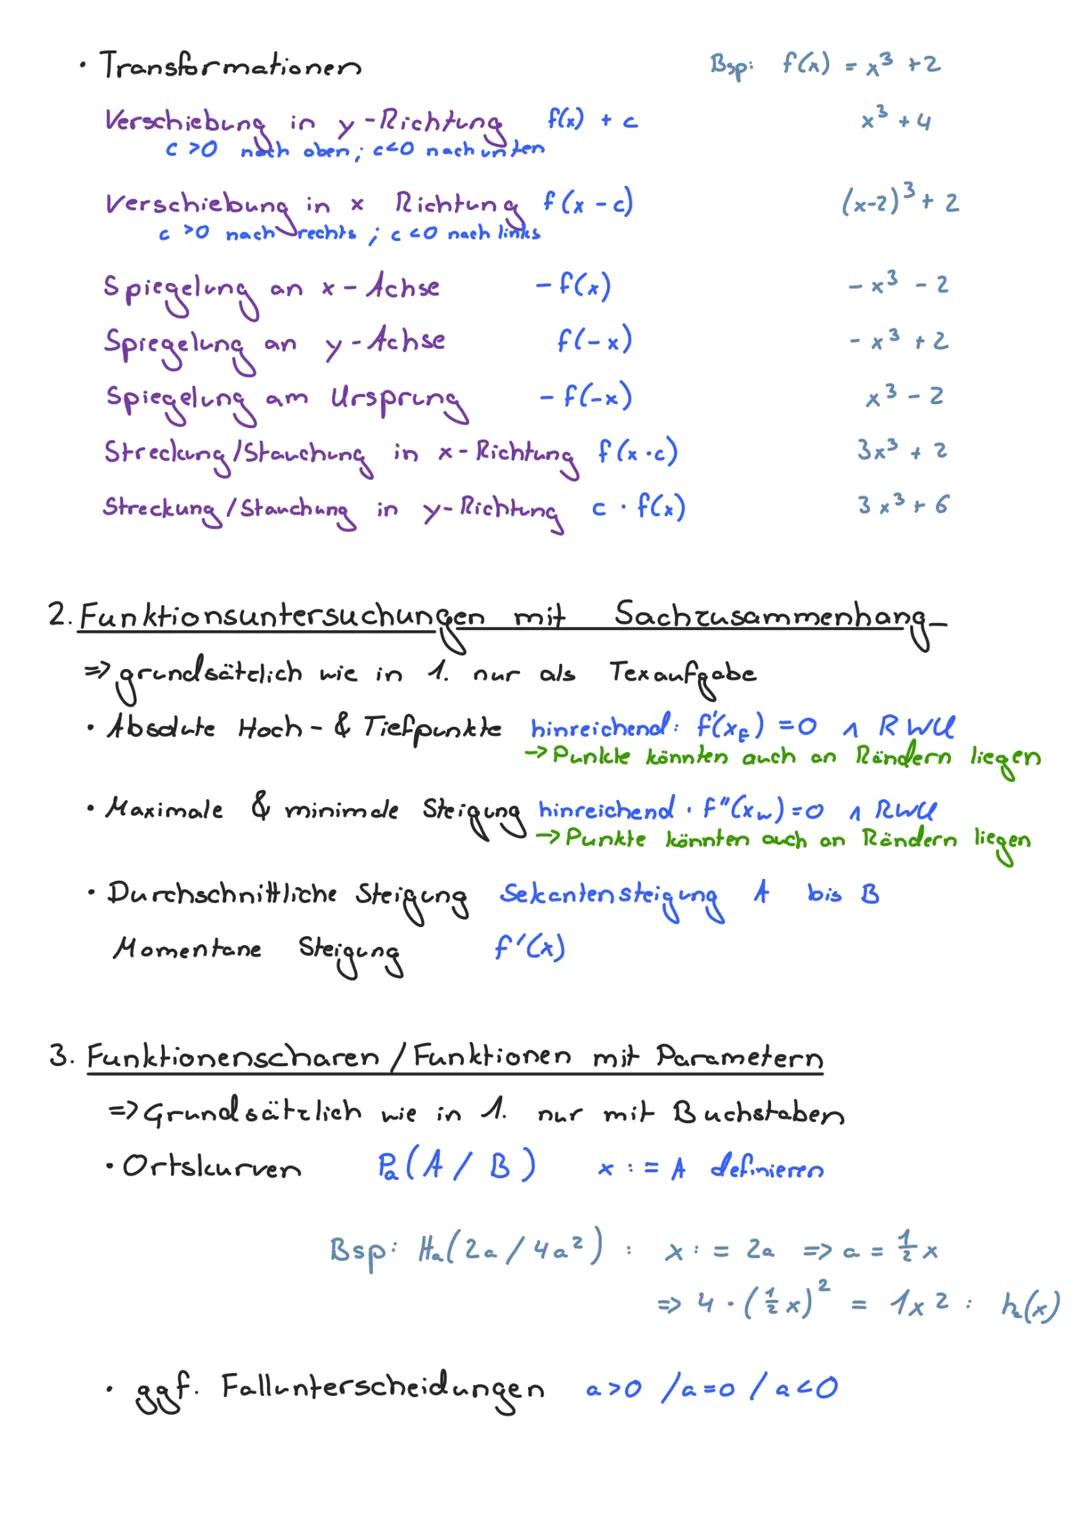 · Transformationen Bsp: f(x) = x³ + 2
Verschiebung in y-Richtung f(x) + c x³ + 4
c > 0 nach oben ; c<0 nach unten
Verschiebung in x Richtung f(x - c) (x-2)³ + 2
c > 0 nach rechts ; c < 0 nach links
Spiegelung an x-Achse - f(x) - x³ - 2
Spiegelung an y-Achse f(-x) - x³ + 2
Spiegelung am Ursprung - f(-x) x³ - 2
Streckung/Stauchung in x-Richtung f(x·c) 3x³ + 2
Streckung/Stauchung in y-Richtung c · f(x) 3x³ + 6
2. Funktionsuntersuchungen mit Sachzusammenhang
=> grundsätzlich wie in 1. nur als Texaufgabe
· Absolute Hoch- & Tiefpunkte hinreichend: f'(x_E) = 0 ∧ RWU
→ Punkte könnten auch an Rändern liegen
· Maximale & minimale Steigung hinreichend · f"(x_w) = 0 ∧ RWU
→ Punkte könnten auch an Rändern liegen
· Durchschnittliche Steigung Sekantensteigung A bis B
Momentane Steigung f'(x)
3. Funktionenscharen / Funktionen mit Parametern
=> Grundsätzlich wie in 1. nur mit Buchstaben
· Ortskurven Pₐ(A / B) x := A definieren
Bsp: Hₐ(2a / 4a²) : x := 2a => a = ½x
=> 4 · (½x)² = 1x² : h(x)
· ggf. Fallunterscheidungen a>0 / a=0 / a<0